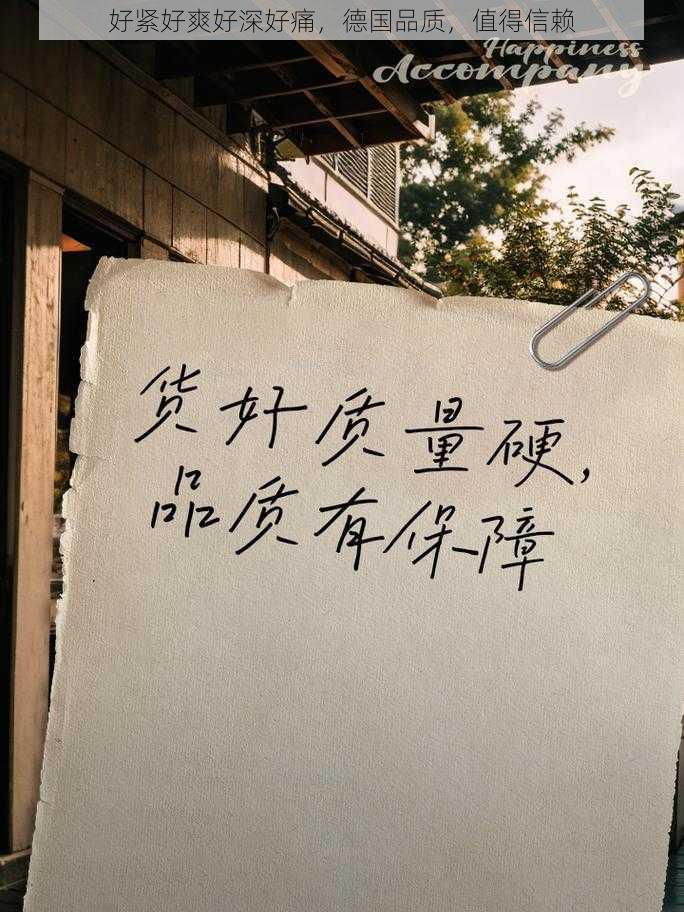 好紧好爽好深好痛，德国品质，值得信赖
Happiness
Accompany
货好质量硬,
品质有保障